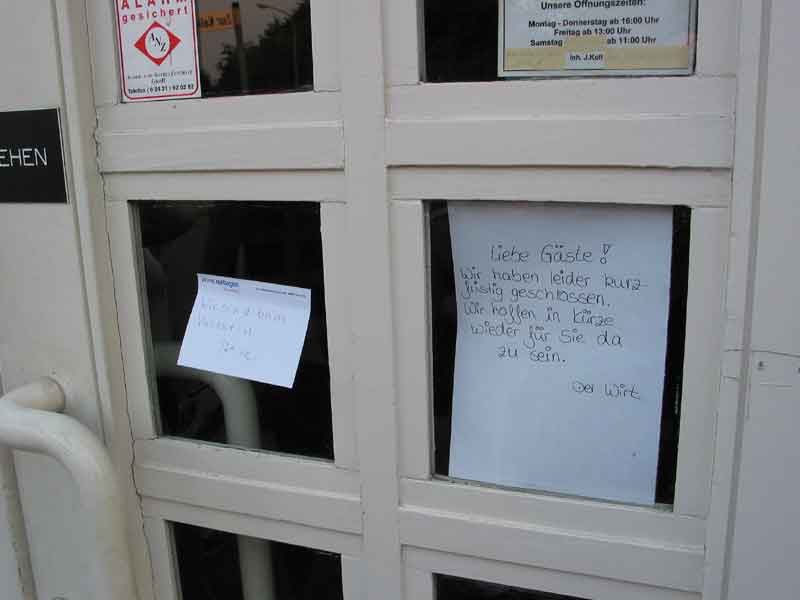 ALARM
gesichert
ANZ
Unsere Öffnungszeiten:
Montag - Donnerstag ab 16:00 Uhr
Freitag ab 13:00 Uhr
Samstag ab 11:00 Uhr
Inh. J.Kell
EHEN
Wir sind beim
Liebe Gäste!
Wir haben leider kurz-
fristig geschlossen.
Wir hoffen in Kürze
wieder für Sie da
zu sein.
Der Wirt